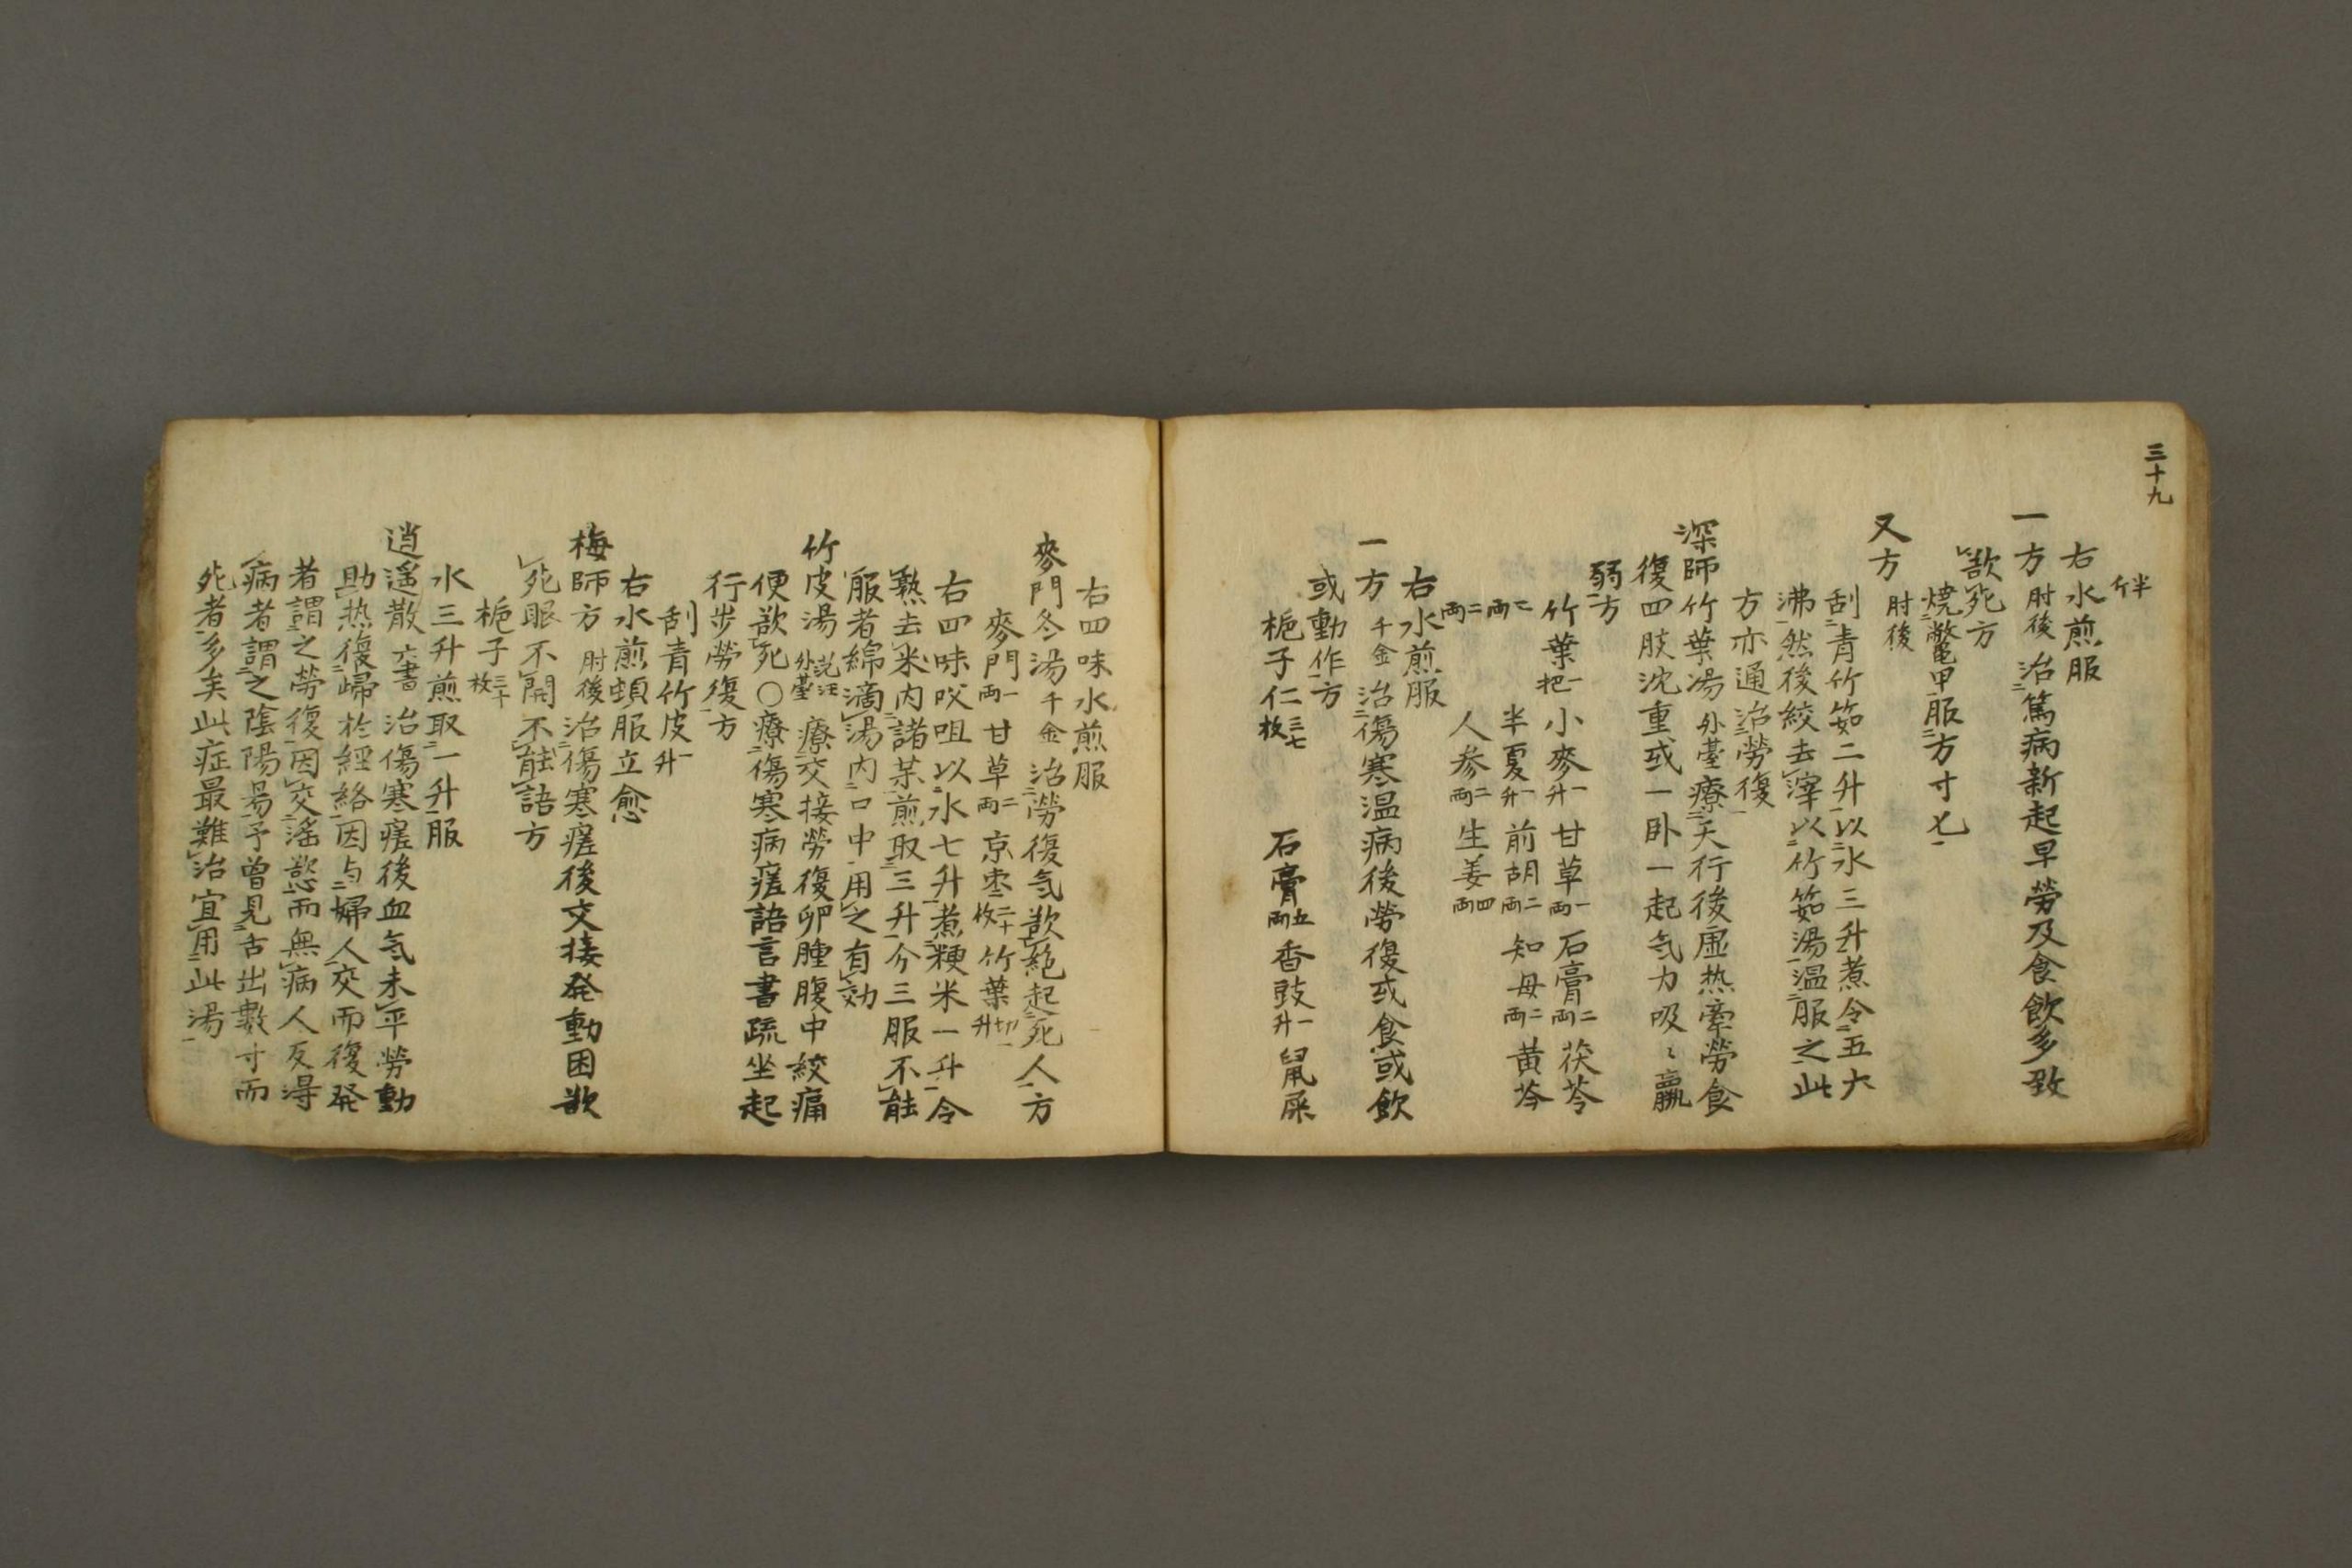 三十九
半斤
右水煎服
一方肘後治篤病新起早勞及食飲多致
欲死方
燒鱉甲服方寸匕
又方肘後
刮青竹筎二升以水三升煮令五六
沸然後絞去滓以竹筎湯温服之此
方亦通治勞復
深師竹葉湯外臺療天行後虛热牽勞食
復四肢沈重或一卧一起气力吸〻羸
弱方
竹葉一把小麥一升甘草一両石膏二両茯苓
二両半夏一升前胡二両知母二両黄芩
二両人参二両生姜四両
右水煎服
一方千金治傷寒温病後勞復或食或飲
或動作方
梔子仁三七枚石膏五両香豉一升鼠屎
右四味水煎服
麥門冬湯千金治勞復气欲絶起死人方
麥門一両甘草二両京枣二十枚竹葉切一升
右四味㕮咀以水七升煮粳米一升令
熟去米内諸茱煎取三升分三服不能
服者綿滴湯内口中用之有効
竹皮湯活汪外臺療交接勞復卵腫腹中絞痛
便欲死〇療傷寒病瘥語言書疏坐起
行步勞復方
刮青竹皮一升
右水煎頓服立愈
梅師方肘後治傷寒瘥後交接発動困欲
死眼不開不能語方
梔子三十枚
水三升煎取一升服
逍遥散六書治傷寒瘥後血气未平勞動
助热復歸於經絡因与婦人交而復発
者謂之勞復因交淫慾而無病人反得
病者謂之陰陽昜予曾見舌出數寸而
死者多矣此症最難治宜用此湯